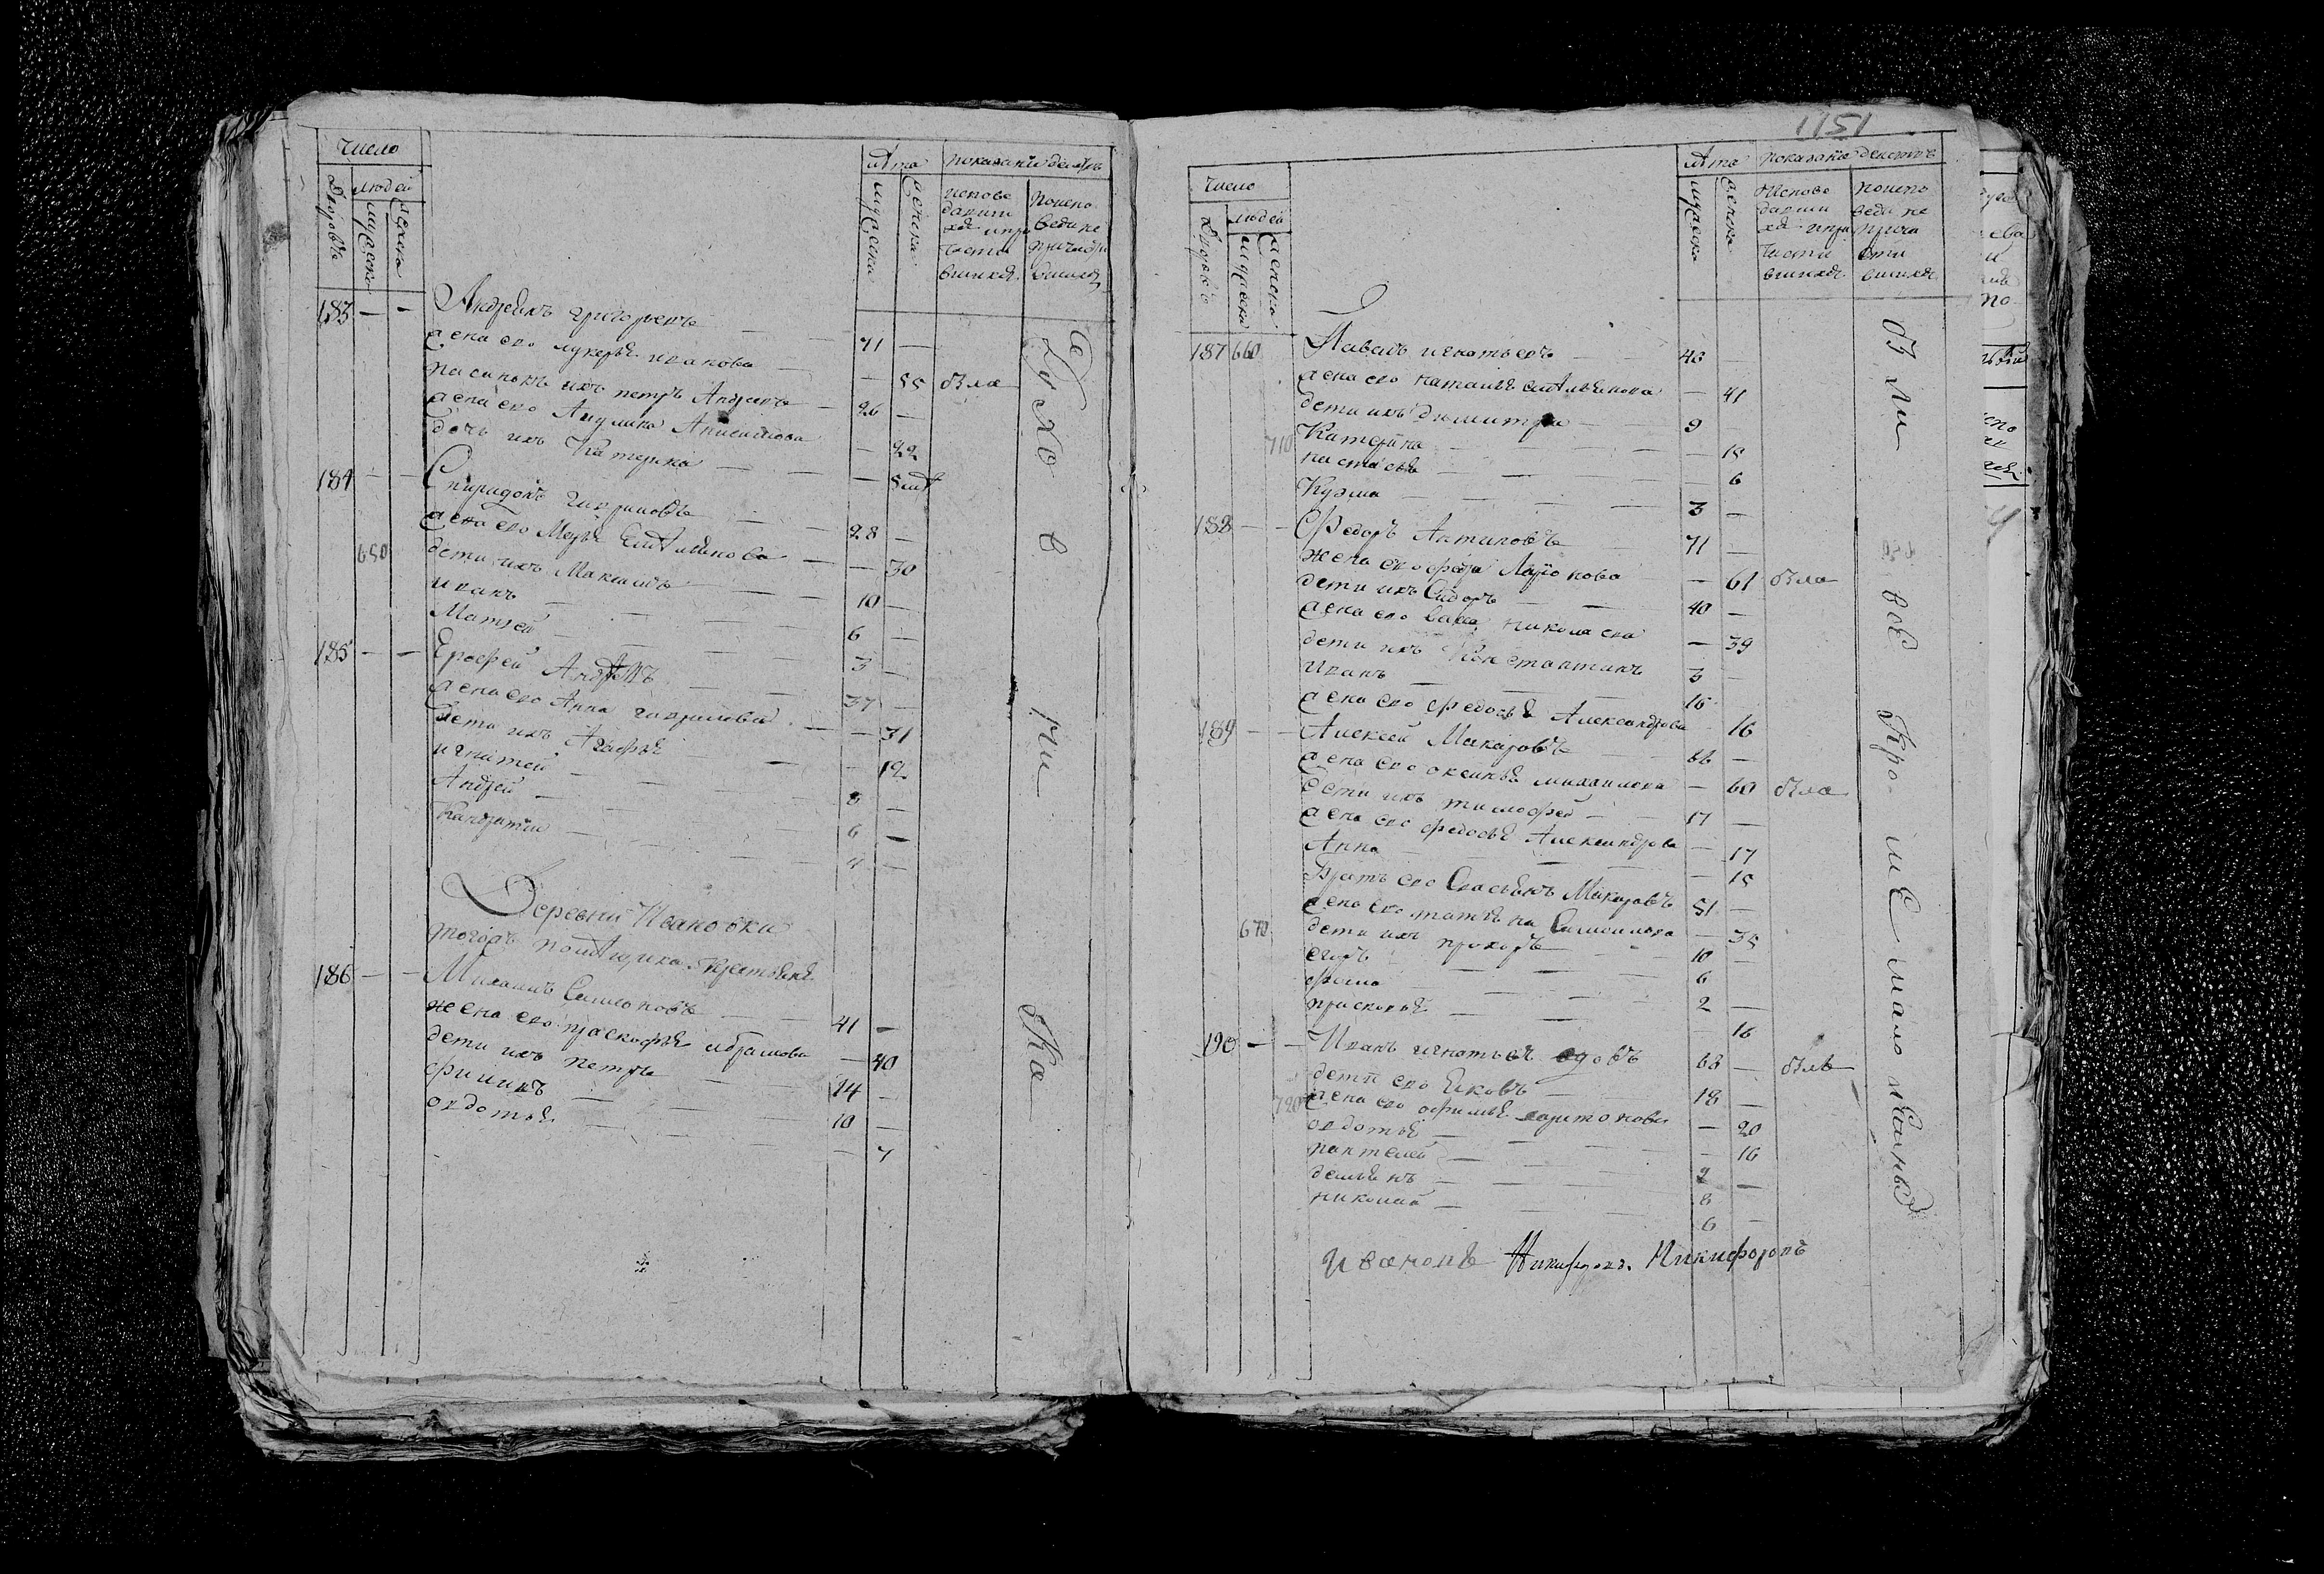 Число
Дворовъ
людей
мужеска
женска
лѣта
мужеска
женска
показанїи действъ
исповедавшихся и причастившихся
183 — — Андреянъ григорьевъ — 71 —
жена его лукерья иванова — 55 была
пасынокъ ихъ петръ Андреевъ — 26 —
жена его Акулина Анисимова — 22
дочь ихъ Катерина — 5 лѣт
184 — — Спиридонъ гавриловъ — 28 —
жена его Марья Емельянова — 30
650 дети ихъ Максимъ — 10 —
иванъ — 6 —
Матвей — 3 —
185 — — Ерофей Андреевъ — 37 —
жена его Анна гаврилова — 31
дети ихъ Агафья — 12
игнатей — 8 —
Андрей — 6 —
Кандратий — 4 —
Деревни Ивановки
тогожъ помѣщика крестьяне
186 — — Михаилъ Симоновъ — 41 —
жена его праскофья абрамова — 40
дети ихъ петръ — 14 —
филипъ — 10 —
овдотья — 7
1151
Число
Дворовъ
людей
мужеска
женска
лѣта
мужеска
женска
показанїе действъ
исповедавшихся и причастившихся
187 660 Павелъ игнатьевъ — 46
жена его наталья емельянова — 41
дети ихъ димитрий — 9
710 Катерина — 15
настасья — 6
Кузма — 3 —
188 — — Федоръ Антиповъ — 71 —
жена его Ларионова — 61 была
дети ихъ Сидоръ — 40 —
жена его николаева — 39
дети ихъ Констянтинъ — 3 —
иванъ — 16
жена его федосья Александрова — 16
189 — — Алексей Макаровъ —
жена его оксинья михаилова — 60 была
дети ихъ тимофей — 17 —
жена его федосья Александрова — 17
Анна — 15
Братъ его Савастьянъ Макаровъ 51 —
жена его татьяна Самоилова — 35
670 дети ихъ прохоръ — 10 —
егоръ — 6
фома — 2 —
прасковья — 16
190 — — Иванъ игнатьевъ вдовъ 63 — былъ
дети его Яковъ — 18 —
720 жена его афимья харитонова — 20
овдотья — 16
пантелей — 2 —
демьянъ — 8
николай — 6 —
ивановъ Никифоровъ. Никифоровъ